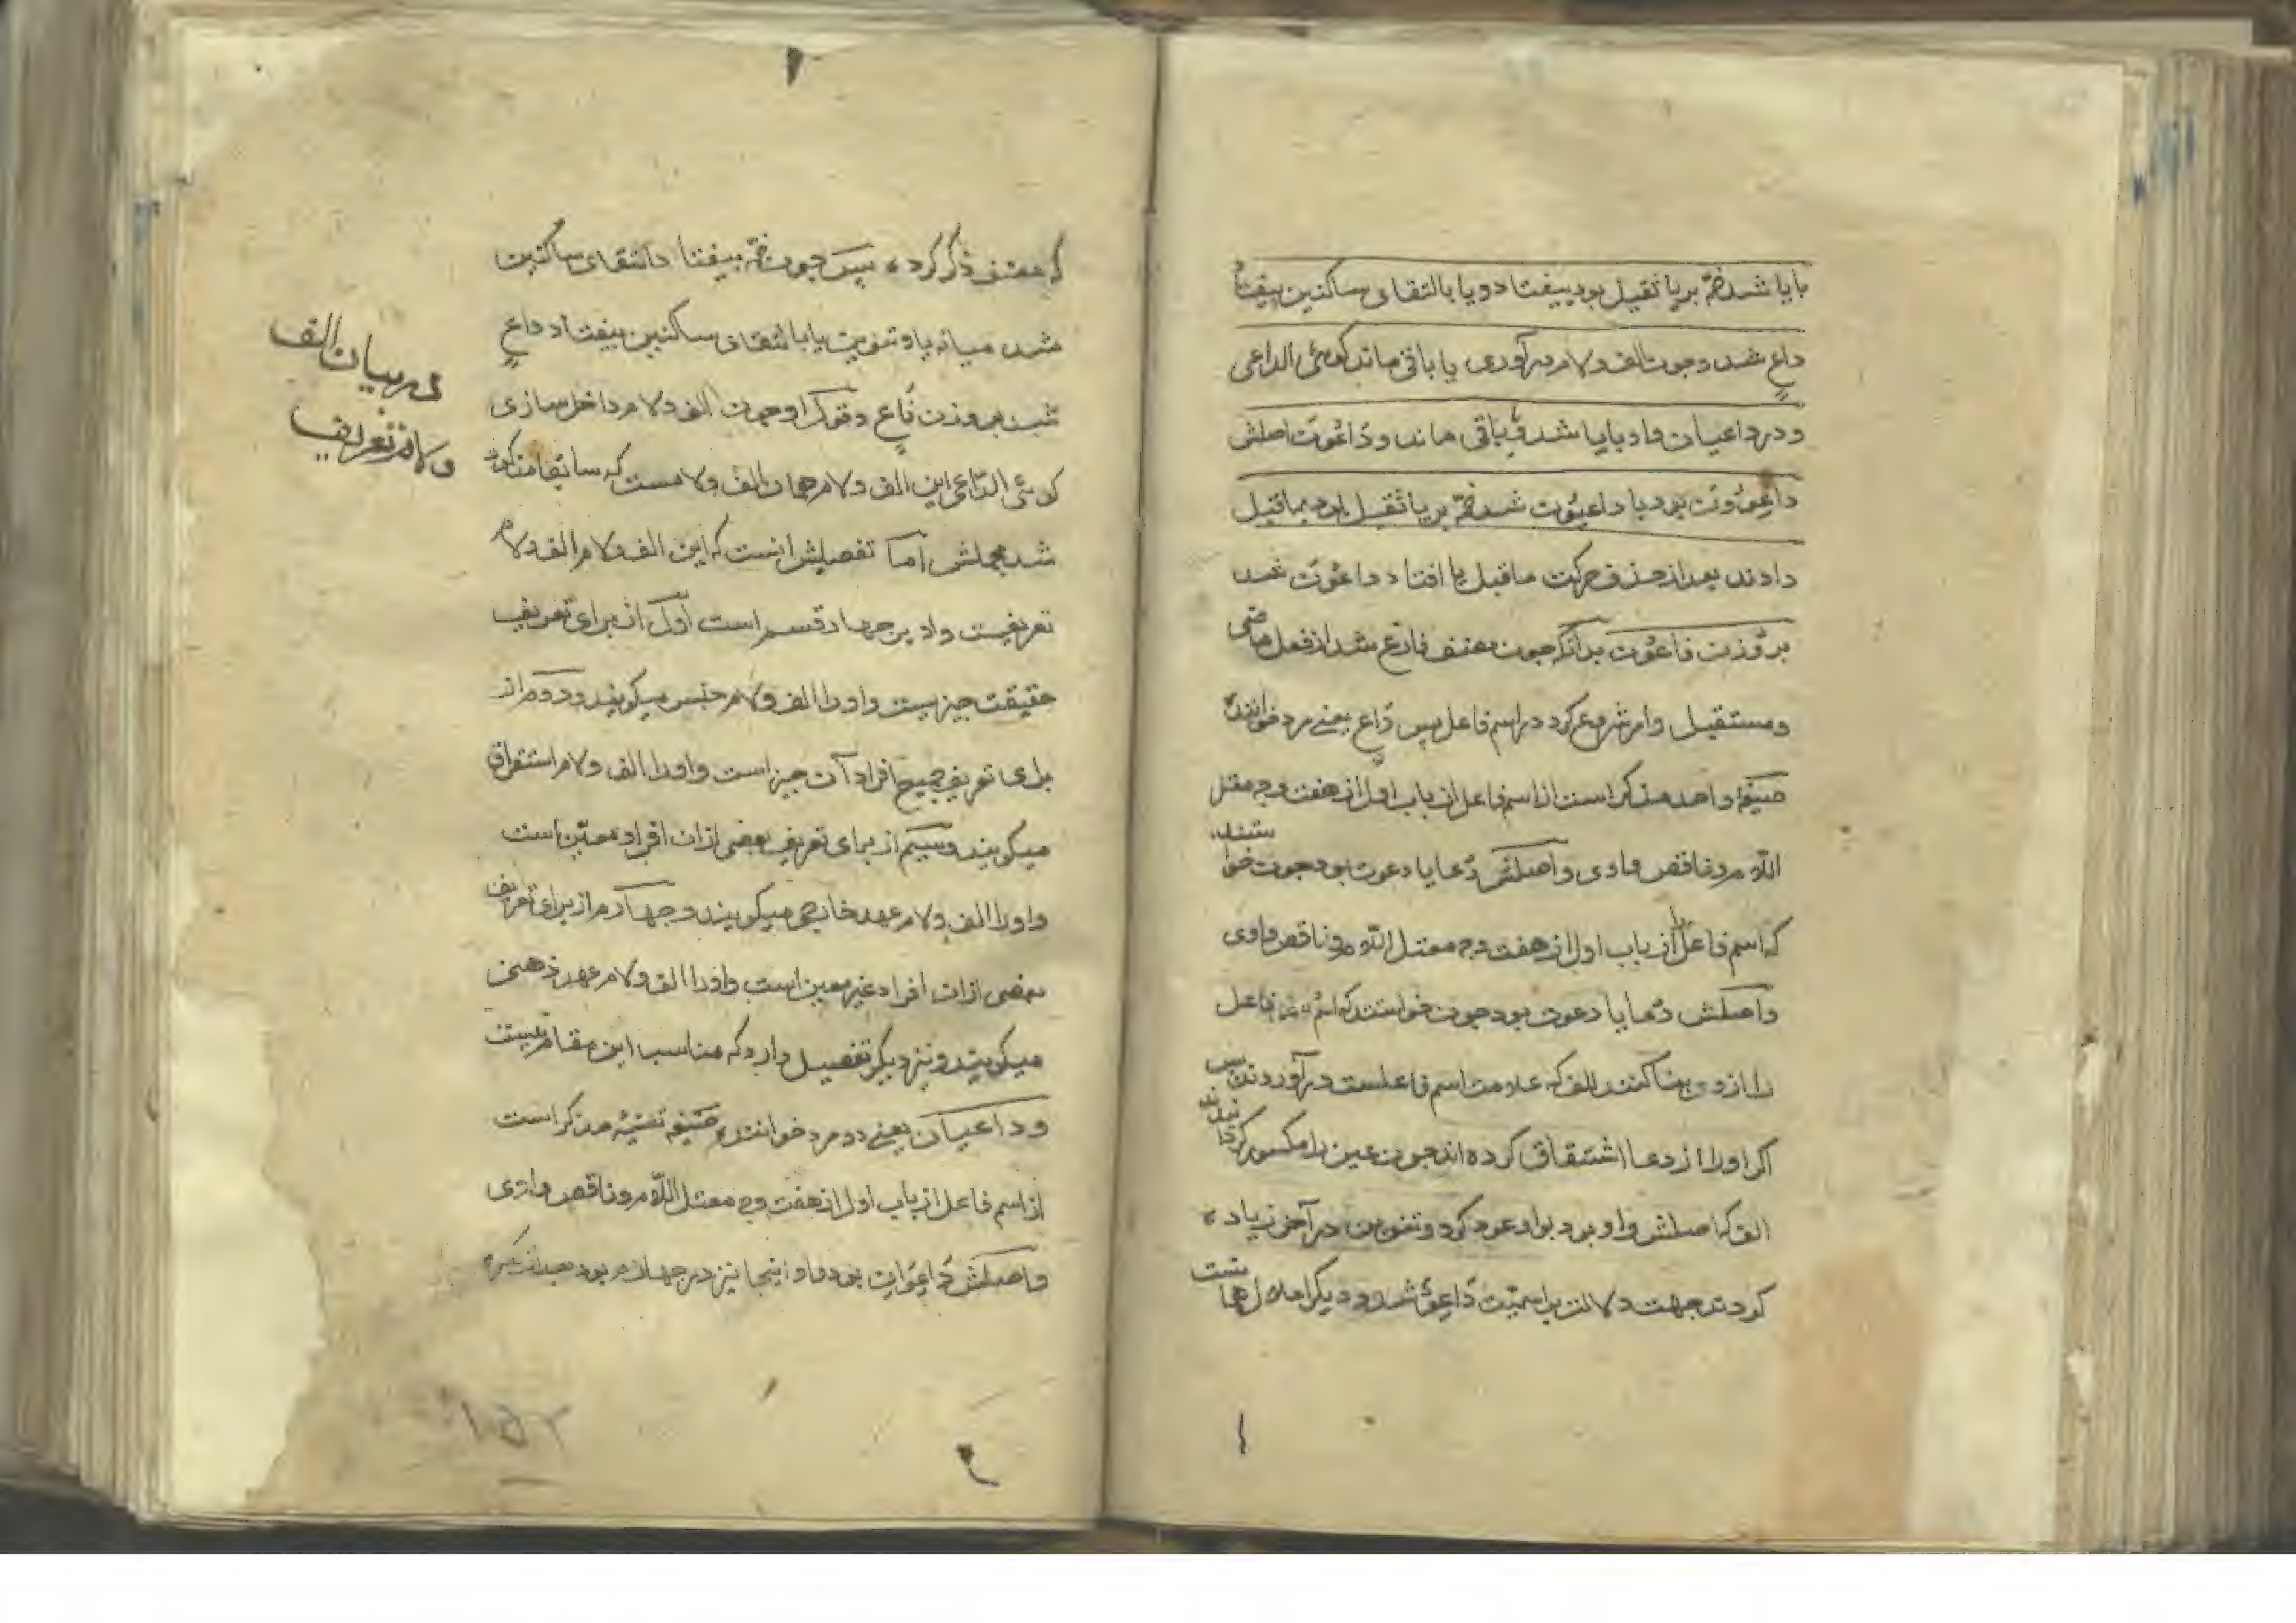 با یا شد ضمّه بر یا ثقیل بود بیفتاد و یا بالتقای ساکنین بیفتاد
داعٍ شد و چون الف و لام در آوری یا باقی ماند کوئی الداعی
و در داعیان واو با یا شد و باقی ماند و دَاعُونَ اصلش
داعِوُونَ بود با داعیُون شد ضمّه بر یا ثقیل بود بماقبل
دادند بعد از حذف حرکت ماقبل یا افتاد داعُونَ شد
بر وزن فاعُونَ بدانکه چون مصنف فارغ شد از فعل ماضی
و مستقبل و امر شروع کرد در اسم فاعل پس دَاعٍ یعنی مرد خواننده
صیغهٔ واحد مذکر است از اسم فاعل از باب اول از هفت وجه معتل
اللام و ناقص واوی و اصلش دُعا یا دعوت بود چون خواستند
که اسم فاعل را از باب اول از هفت وجه معتل اللام و ناقص واوی
و اصلش دعا یا دعوت بود چون خواستند که اسم فاعل
را از وی بنا کنند الف که علامت اسم فاعلست در آوردند پس
اکر او را از دعا اشتقاق کرده اند چون عین را مکسور کردانیدند
الف که اصلش واو بود بواو عود کرد و تنوین در آخر زیاده
کردند جهت دلالت بر اسمیّت دَاعِوٌ شد و دیکر اعلال همانست
که مصنف ذکر کرده پس چون ضمّه بیفتاد التقای ساکنین
شد میانه یا و تنوین یا بالتقای ساکنین بیفتاد داعٍ
شد بر وزن فَاعٍ و چون الف و لام داخل سازی
کوئی الدّاعی این الف و لام همان الف و لامست که سابقا مذکور
شد مجملش اما تفصیلش اینست که این الف و لام الف و لام
تعریفست و او بر چهار قسم است اول از برای تعریف
حقیقت چیزیست و او را الف و لام جنس میکویند و دوم از
برای تعریف جمیع افراد آن چیز است و او را الف و لام استغراق
میکویند و سیّم از برای تعریف بعضی از ان افراد معیّن است
و او را الف و لام عهد خارجی میکویند و چهارم از برای تعریف
بعضی از ان افراد غیر معین است و او را الف و لام عهد ذهنی
میکویند و نیز دیکر تفصیل دارد که مناسب این مقام نیست
و داعیان یعنی دو مرد خواننده صیغه تثنیه مذکر است
از اسم فاعل از باب اول از هفت وجه معتل اللام و ناقص واوی
و اصلش دَاعِوَانِ بود واو اینجا نیز در چهارم بود بعد از کسره
در بیان الف
و لام تعریف
۱۵۲